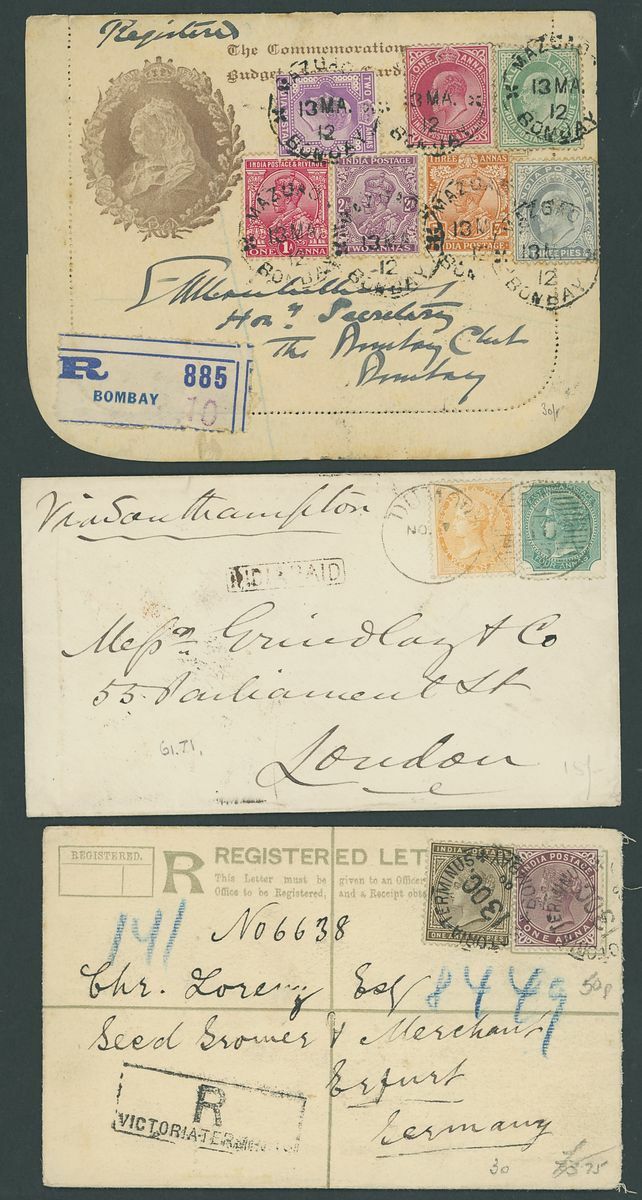 Registered
The Commemoration
Budget
TWO ANNAS
ONE ANNA
MAZGAO
13 MA.
12
BOMBAY
INDIA POSTAGE & REVENUE
ONE 1A ANNA
INDIA POSTAGE
2As
TWO ANNAS
THREE ANNAS
INDIA POSTAGE
THREE PIES
MAZGAO
13 MA
12
BOMBAY
Hon. Secretary
The Bombay Club
Bombay
R 885
BOMBAY 10
30/-
Via Southampton
NO.
EAST INDIA
FOUR ANNAS
INDIA PAID
Messrs Grindlay & Co
55 Parliament St
London
61.71.
15/-
REGISTERED.
R REGISTERED LET
This Letter must be given to an Officer
Office to be Registered, and a Receipt obt
INDIA POSTAGE
INDIA POSTAGE
ONE ANNA
TERMINUS
13 OC
141
No 6638
Chr. Lorenz Esq
8449
50
Seed Grower & Merchant
Erfurt
Germany
R
VICTORIA-TERMINUS
30